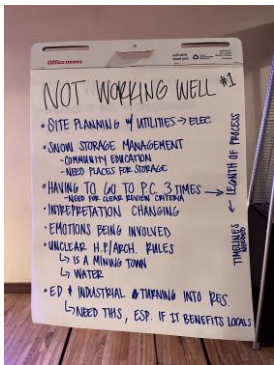 Office DEPOT
NOT WORKING WELL #1
• SITE PLANNING w/ UTILITIES → ELEC.
• SNOW STORAGE MANAGEMENT
- COMMUNITY EDUCATION
- NEED PLACES FOR STORAGE
• HAVING TO GO TO P.C. 3 TIMES →
- NEED FOR CLEAR REVIEW CRITERIA
• INTREPRETATION CHANGING
• EMOTIONS BEING INVOLVED
• UNCLEAR H.P/ARCH. RULES
↳ IS A MINING TOWN
↳ WATER
• ED & INDUSTRIAL TURNING INTO RES.
↳ NEED THIS, ESP. IF IT BENEFITS LOCALS
LEGNTH OF PROCESS
← TIMELINES
NEEDED